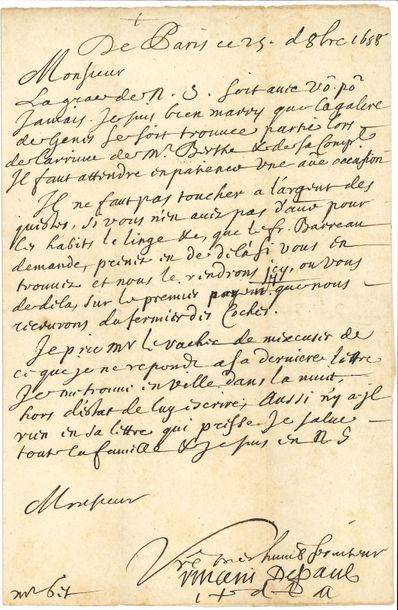 De Paris ce 25. d 8bre 1658
Monsieur
La grace de N. S. soit avec vo9 po9
Jamais. Je suis bien marry que la galere
de Genes se soit trouvee partie lors
de l'arrivee de Mr Berthe & de sa Comp.
Il faut attendre en patience une aue occasion
Il ne faut pas toucher a l'argent des
, Si vous n'en avez pas d'aue pour
les habits le linge &c, que le fr. Barreau
demande, prenez en de dela si vous en
trouvez et nous le rendrons icy, ou vous
de dela, sur le premier paym. que nous
recevrons du fermier des Coches.
Je prie Mr le Vacher de m'excuser de
ce que je ne reponds a sa derniere lettre
Je me trouve en ville dans la nuit,
hors d'estat de luy escrire; Aussi n'y a-jl
rien en sa lettre qui presse. Je salue
toute la famille & je suis en N S
Monsieur
Vre tres humb serviteur
Vincent Depaul